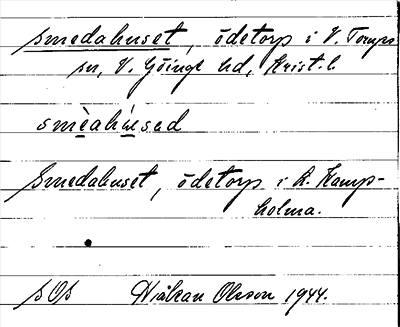 Smedahuset, ödetorp i V. Torups
sn, V. Göinge hd, Krist. l.
smèahúsad
Smedahuset, ödetorp i L. Kamp-
holma.
SOS Håkan Olsson 1944.